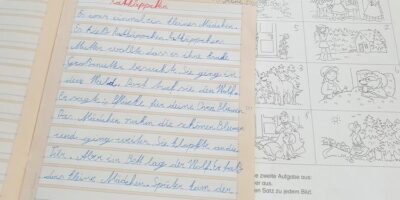 Rotkäppchen
Es war einmal ein kleines Mädchen.
Es hieß Rotkäppchen. Rotkäppchen
Mutter wollte dass er ihre kranke
Großmutter besuchte. Sie ging in
den Wald. Doch traf sie den Wolf.
Er sagte: Pflücke für deine Oma Blumen
Das Mädchen nahm die schönen Blumen
und ging weiter. Sie klopfte an die
Tür. Aber im Bett lag der Wolf. Er fraß
das kleine Mädchen. Später kam der
zweite Aufgabe aus:
er aus.
Satz zu jedem Bild.